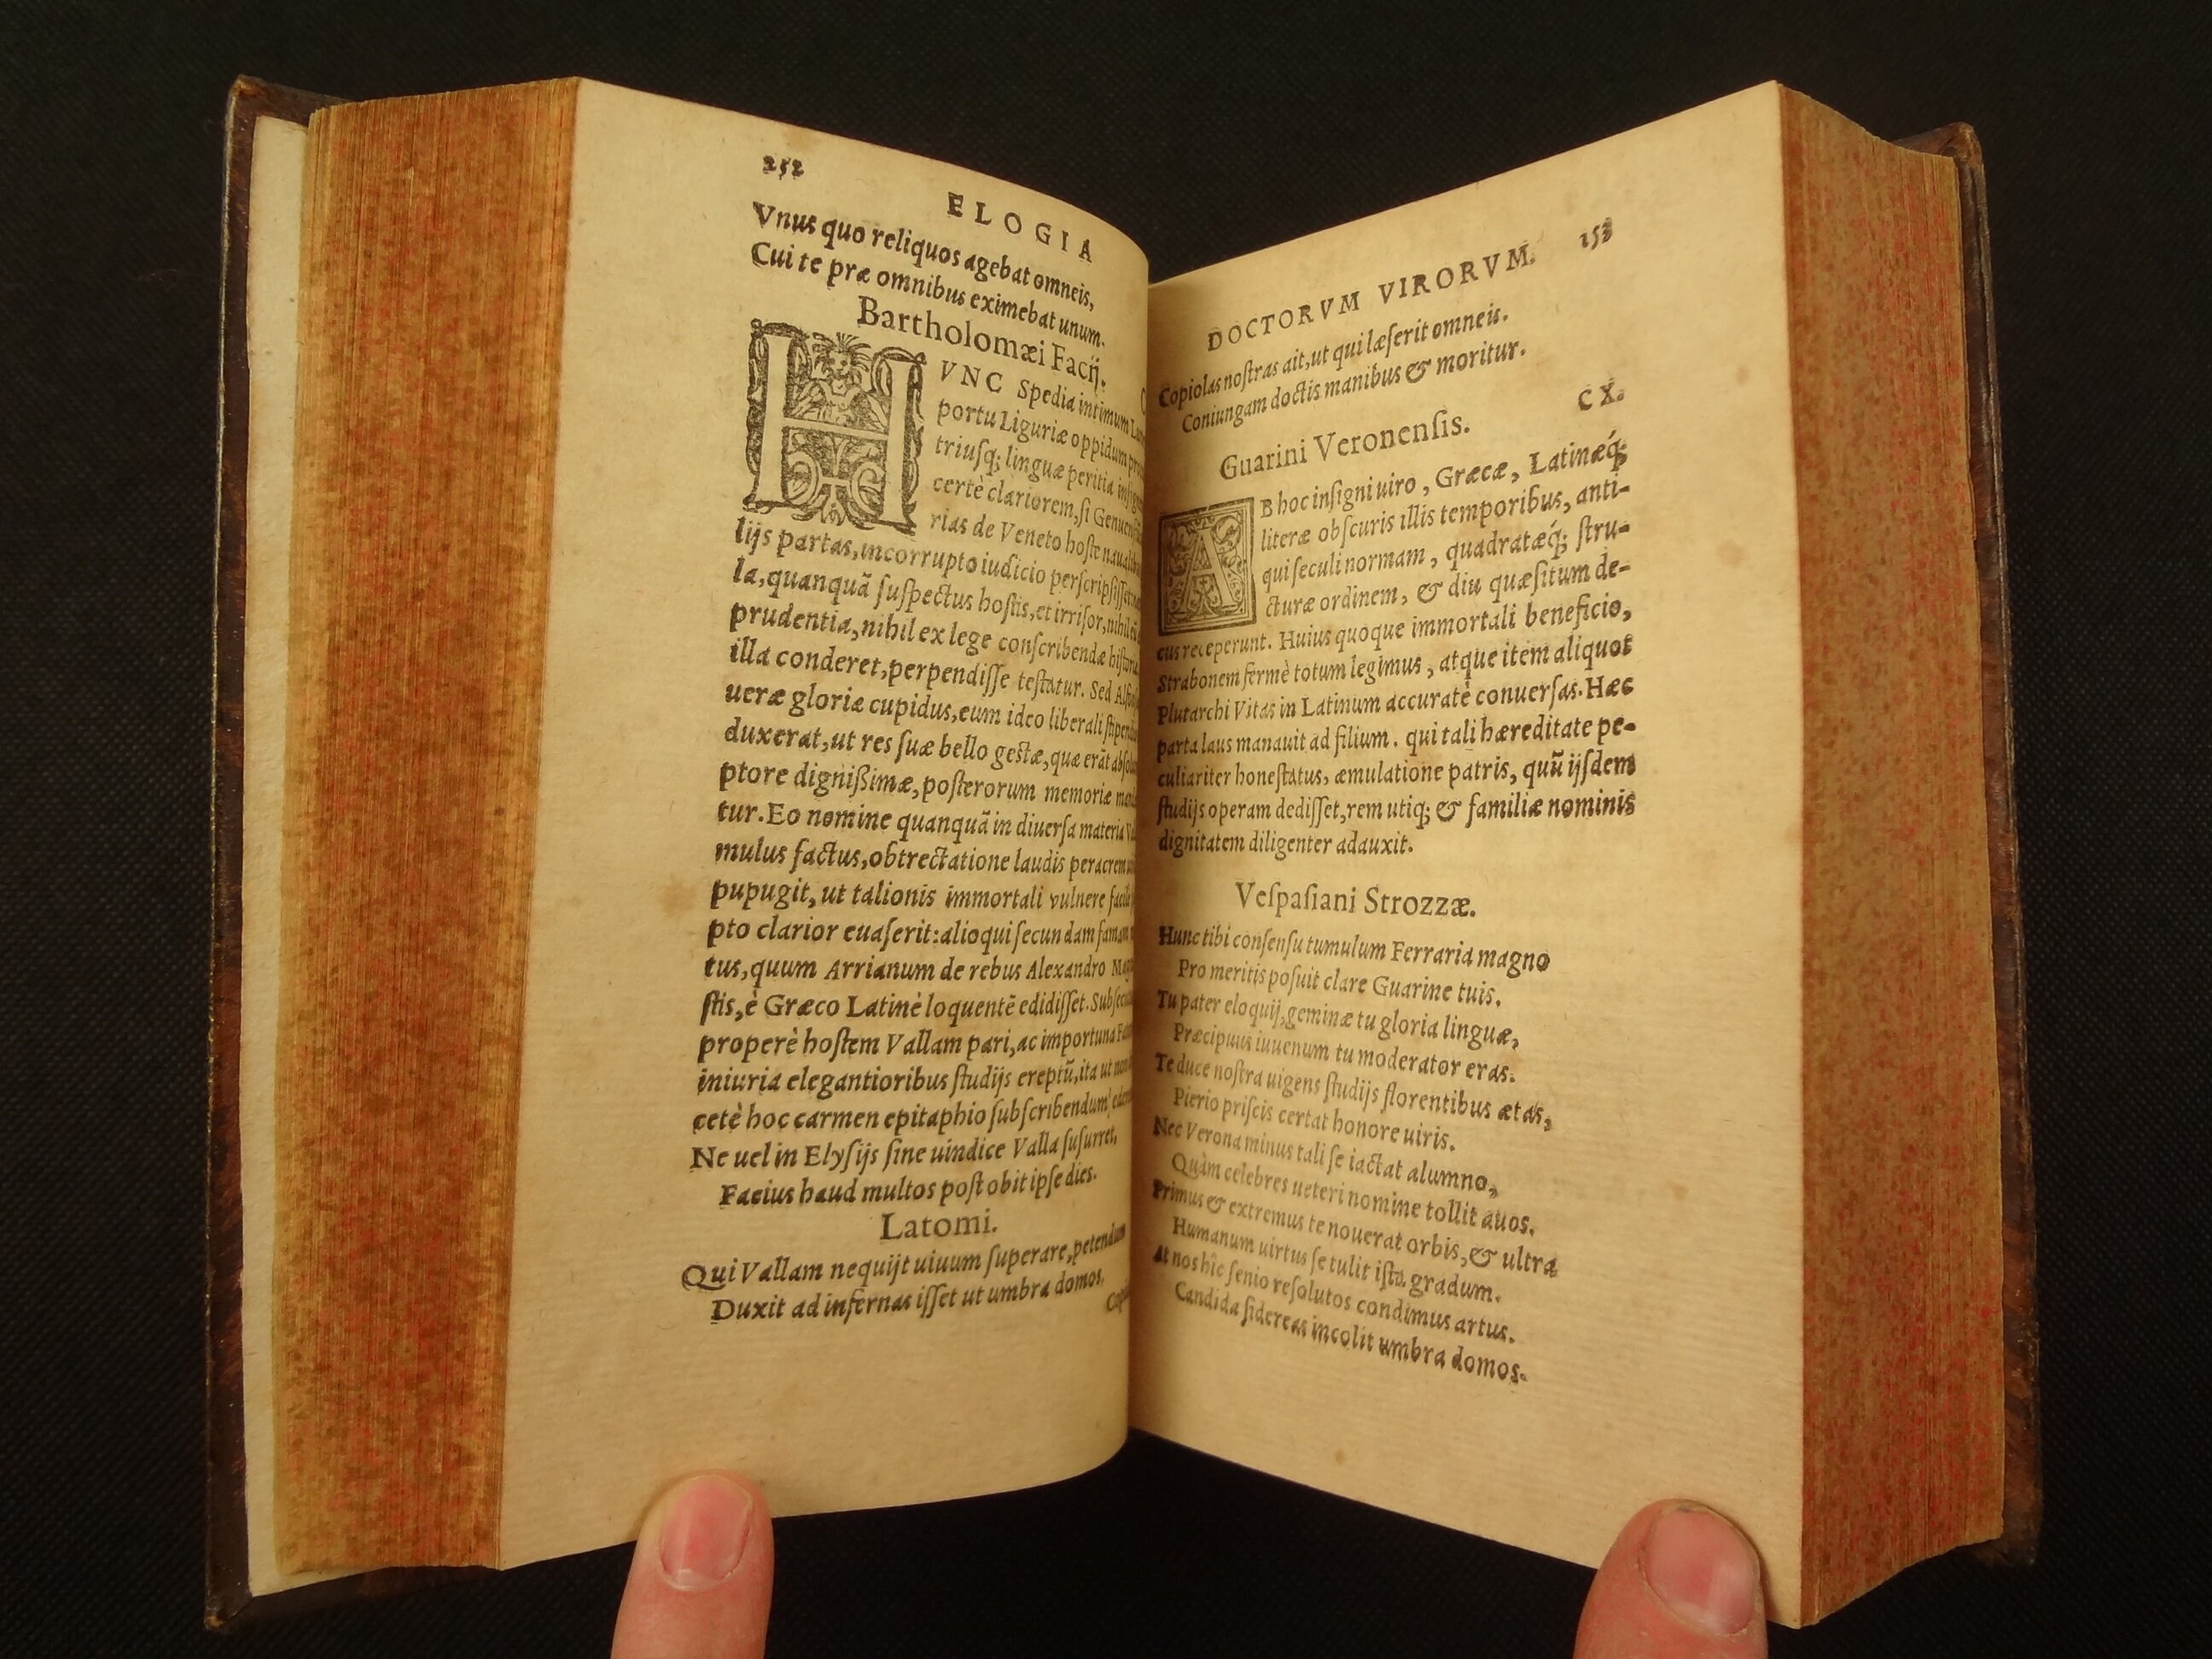 252
ELOGIA
Vnus quo reliquos agebat omneis,
Cui te præ omnibus eximebat unum.
Bartholomæi Facij.
HVNC Spedia intimum
portu Liguriæ oppidum
triusq; linguæ peritia
certè clariorem, si
rias de Veneto hoste
lijs partas, incorrupto iudicio
la, quanquã suspectus hostis, et irrisor, nihil
prudentia, nihil ex lege conscribendæ
illa conderet, perpendisse testatur. Sed
ueræ gloriæ cupidus, eum ideo liberali
duxerat, ut res suæ bello gestæ, quæ erãt
ptore dignißimæ, posterorum memoriæ
tur. Eo nomine quanquã in diuersa materia
mulus factus, obtrectatione laudis peracrem
pupugit, ut talionis immortali vulnere
pto clarior euaserit: alioqui secundam famam
tus, quum Arrianum de rebus Alexandro
stis, è Græco Latinè loquentẽ edidisset.
properè hostem Vallam pari, ac importuna
iniuria elegantioribus studijs ereptũ, ita ut
cetè hoc carmen epitaphio subscribendum
Ne uel in Elysijs sine uindice Valla susurret,
Facius haud multos post obit ipse dies.
Latomi.
Qui Vallam nequijt uiuum superare, petendum
Duxit ad infernas isset ut umbra domos.
DOCTORVM VIRORVM. 153
Copiolas nostras ait, ut qui læserit omneis.
Coniungam doctis manibus & moritur.
CX.
Guarini Veronensis.
AB hoc insigni uiro, Græcæ, Latinæq́;
literæ obscuris illis temporibus, anti-
qui seculi normam, quadratæq́; stru-
cturæ ordinem, & diu quæsitum de-
cus receperunt. Huius quoque immortali beneficio,
Strabonem fermè totum legimus, atque item aliquot
Plutarchi Vitas in Latinum accuratè conuersas. Hæc
parta laus manauit ad filium. qui tali hæreditate pe-
culiariter honestatus, æmulatione patris, quũ ijsdem
studijs operam dedisset, rem utiq; & familiæ nominis
dignitatem diligenter adauxit.
Vespasiani Strozzæ.
Hunc tibi consensu tumulum Ferraria magno
Pro meritis posuit clare Guarine tuis.
Tu pater eloquij, geminæ tu gloria linguæ,
Præcipuus iuuenum tu moderator eras.
Te duce nostra uigens studijs florentibus ætas,
Pierio priscis certat honore uiris.
Nec Verona minus tali se iactat alumno,
Quàm celebres ueteri nomine tollit auos.
Primus & extremus te nouerat orbis, & ultra
Humanum uirtus se tulit ista gradum.
At nos hîc senio resolutos condimus artus.
Candida sidereas incolit umbra domos.